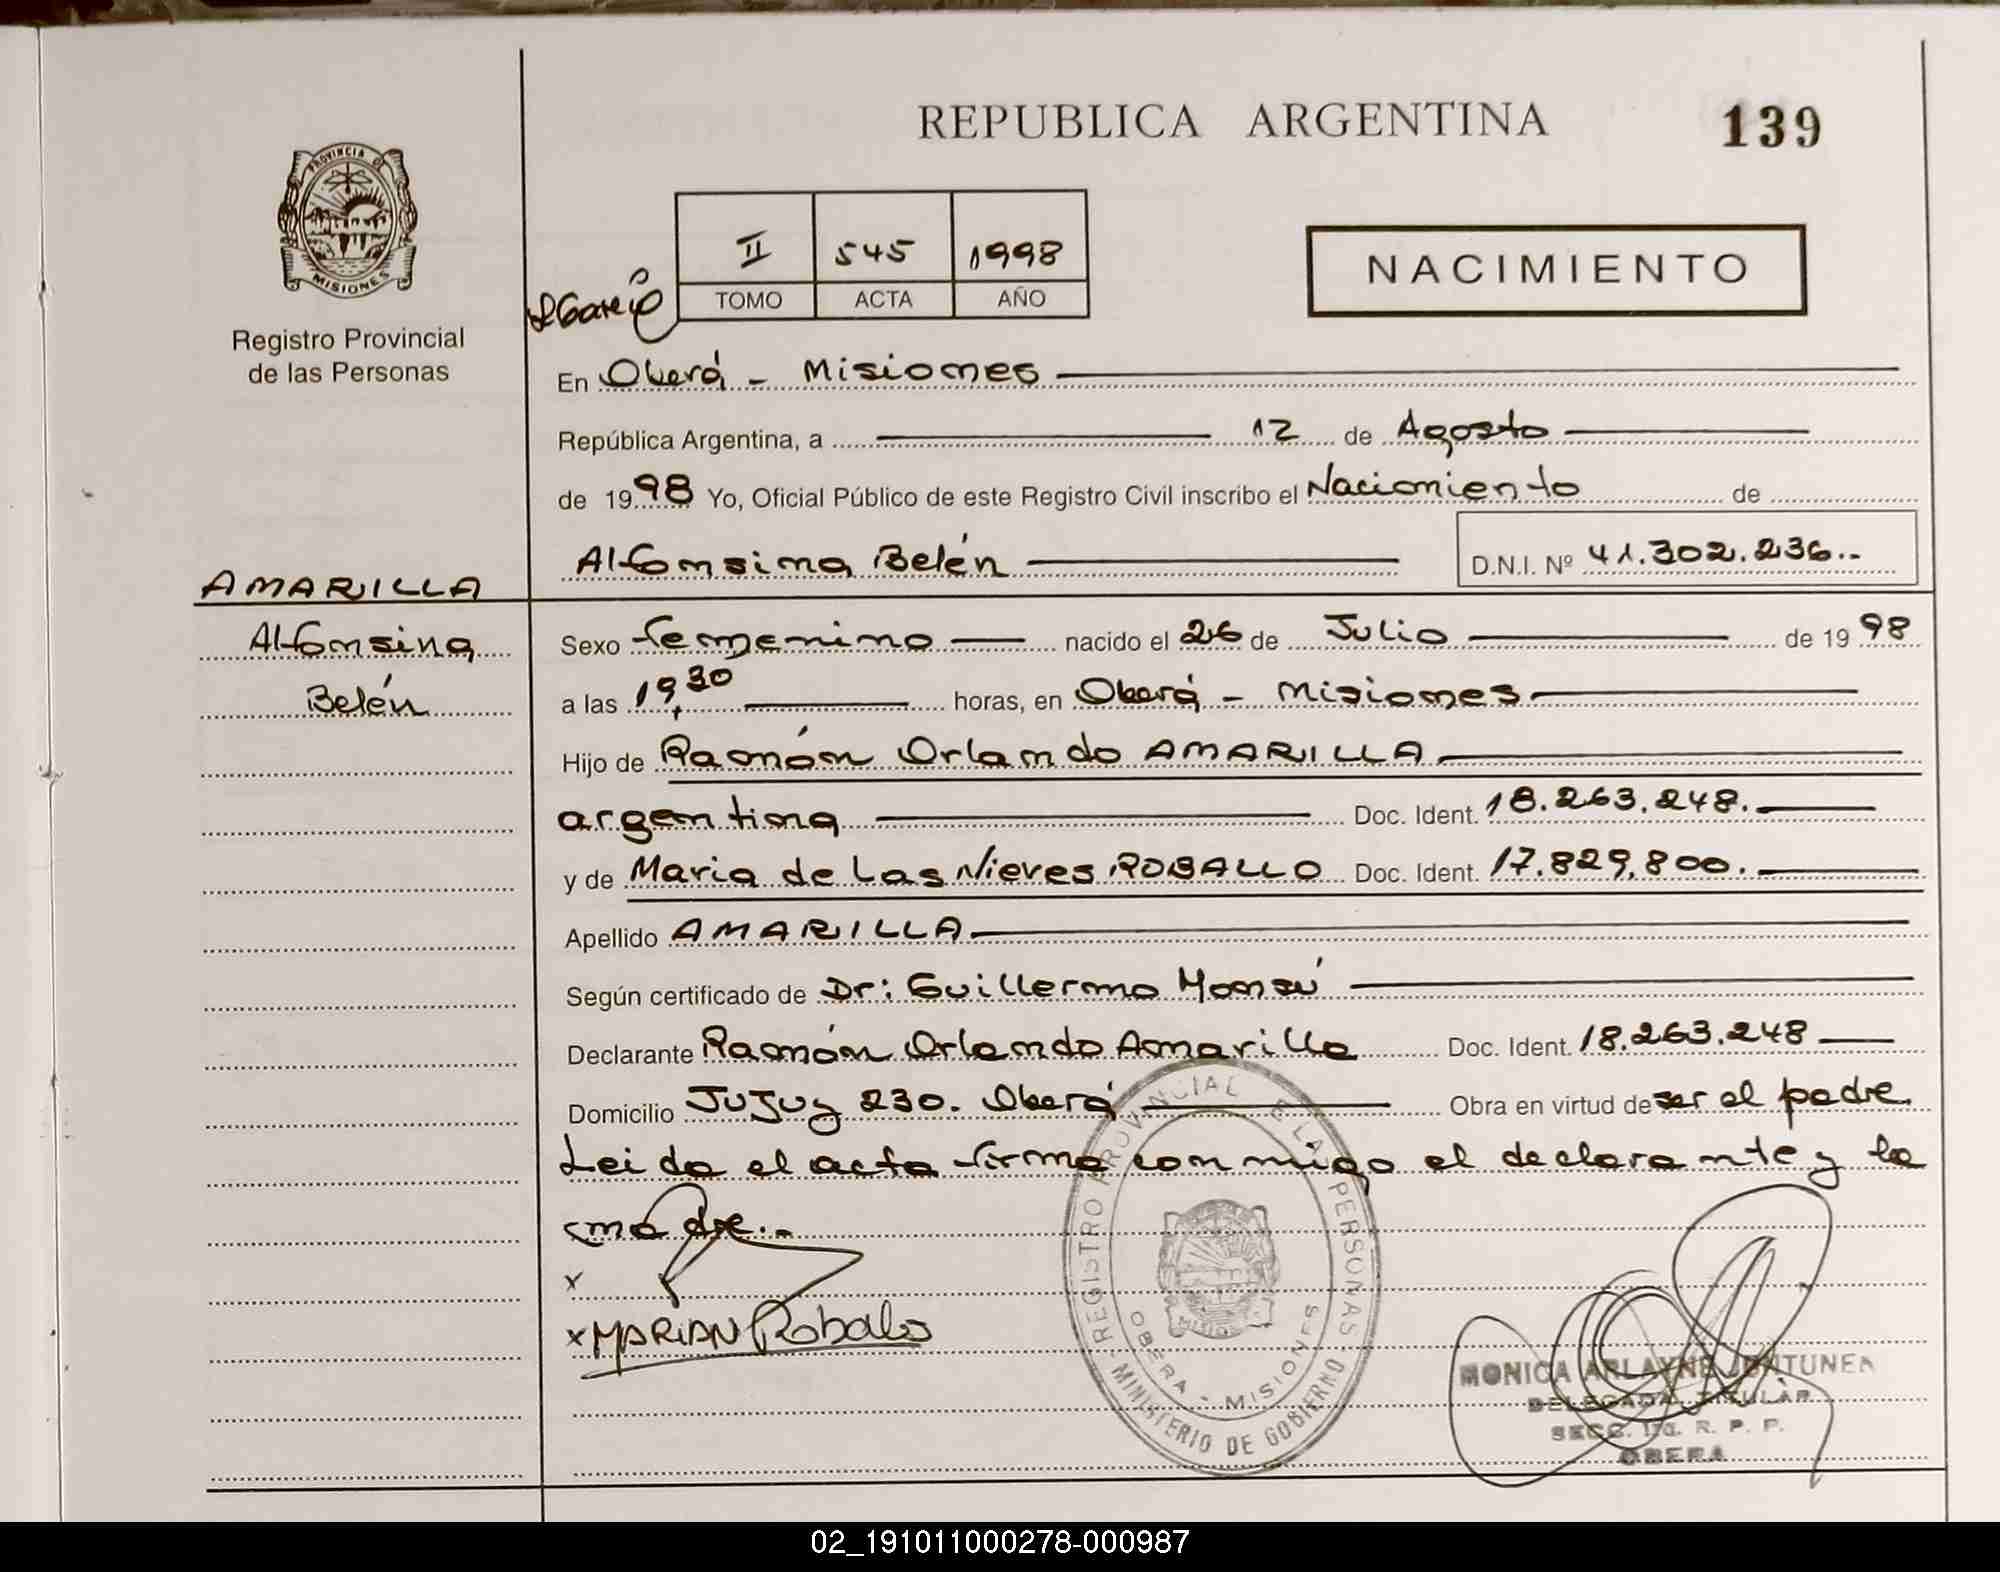 REPUBLICA ARGENTINA
139
PROVINCIA DE
MISIONES
Registro Provincial
de las Personas
II 545 1998
TOMO ACTA AÑO
NACIMIENTO
En Oberá - Misiones
República Argentina, a 12 de Agosto
de 1998 Yo, Oficial Público de este Registro Civil inscribo el Nacimiento de
Alfonsina Belén D.N.I. Nº 41.302.236.-
AMARILLA
Alfonsina
Belén
Sexo femenino nacido el 26 de Julio de 1998
a las 19,30 horas, en Oberá - Misiones
Hijo de Ramón Orlando AMARILLA
argentina Doc. Ident. 18.263.248.
y de Maria de Las Nieves ROBALLO Doc. Ident. 17.829.800.
Apellido AMARILLA
Según certificado de Dr: Guillermo Monsú
Declarante Ramón Orlando Amarilla Doc. Ident. 18.263.248
Domicilio Jujuy 230. Oberá Obra en virtud de ser el padre.
Leida el acta firma conmigo el declarante y la
madre.-
x
x MARIAN Roballo
REGISTRO PROVINCIAL DE LAS PERSONAS
OBERA - MISIONES
MINISTERIO DE GOBIERNO
MONICA ARLAYNE
DELEGADA TITULAR
SECC. R. P. P.
OBERA
02_191011000278-000987